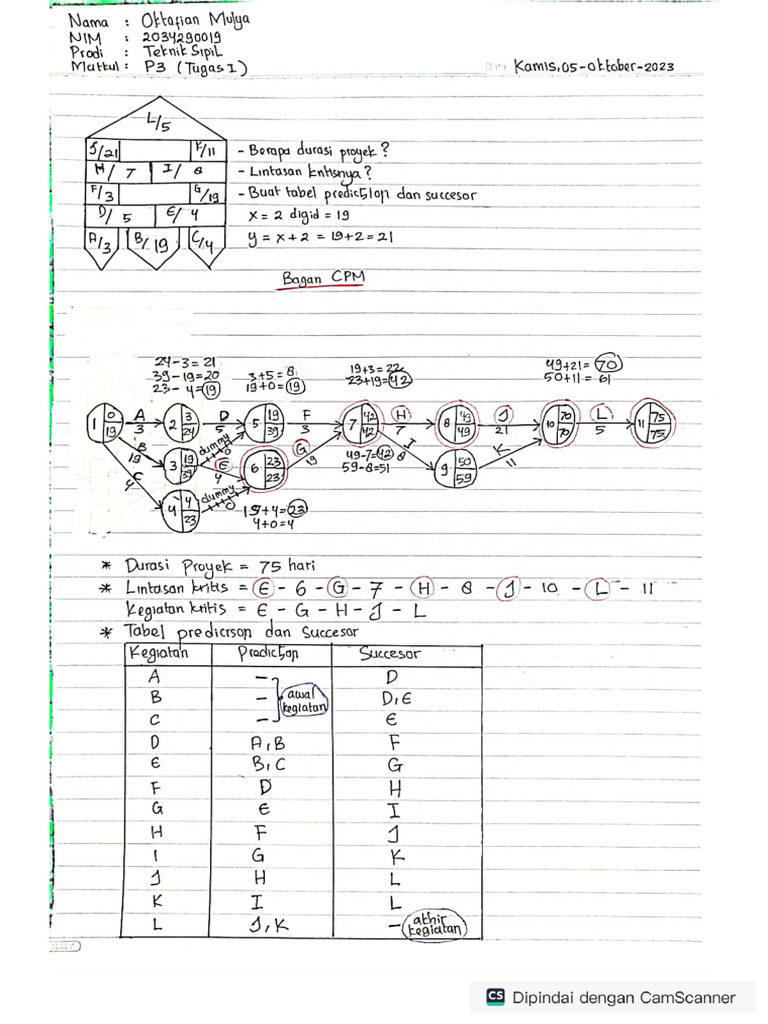 Nama : Oktafian Mulya
NIM : 2034290019
Prodi : Teknik Sipil
Matkul : P3 (Tugas I)
Kamis, 05-oktober-2023
L/5
J/21 K/11
H/7 I/8
F/3 G/19
D/5 E/4
A/3 B/19 C/4
- Berapa durasi proyek?
- Lintasan kritisnya?
- Buat tabel prediction dan succesor
x = 2 digid = 19
y = x + 2 = 19 + 2 = 21
Bagan CPM
24 - 3 = 21
39 - 19 = 20
23 - 4 = 19
3 + 5 = 8
19 + 0 = 19
19 + 3 = 22
23 + 19 = 42
49 + 21 = 70
50 + 11 = 61
1 0 19
A 3
2 3 24
D 5
5 19 39
F 3
7 42 42
H 7
8 49 49
J 21
10 70 70
L 5
11 75 75
B 19
3 19 39
dummy 0
E 4
6 23 23
G 19
49 - 7 = 42
59 - 8 = 51
I 8
9 50 59
K 11
4
4 4 23
dummy 0
19 + 4 = 23
4 + 0 = 4
* Durasi Proyek = 75 hari
* Lintasan kritis = E - 6 - G - 7 - H - 8 - J - 10 - L - 11
Kegiatan kritis = E - G - H - J - L
* Tabel predicrson dan Succesor
Kegiatan Prediction Succesor
A - D
B - D, E
C - E
awal kegiatan
D A, B F
E B, C G
F D H
G E I
H F J
I G K
J H L
K I L
L J, K - akhir kegiatan
CS Dipindai dengan CamScanner